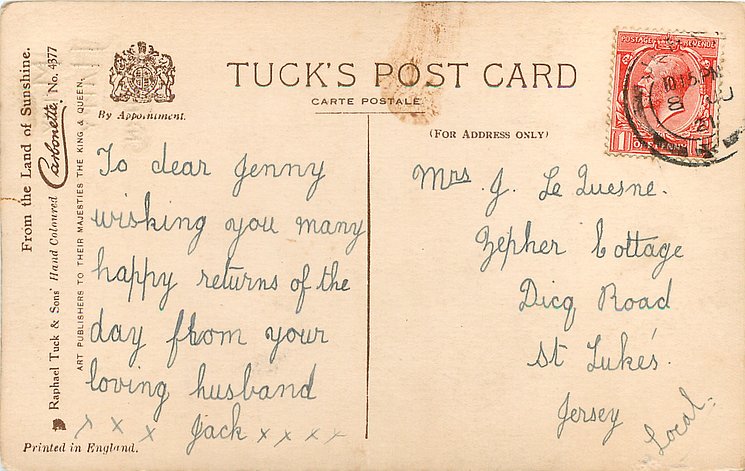 From the Land of Sunshine.
Raphael Tuck & Sons' Hand Coloured Carbonette, No. 4377
ART PUBLISHERS TO THEIR MAJESTIES THE KING & QUEEN.
By Appointment.
TUCK'S POST CARD
CARTE POSTALE
(FOR ADDRESS ONLY)
POSTAGE REVENUE
ONE PENNY
10.15 PM
8
To dear Jenny
wishing you many
happy returns of the
day fhom your
loving husband
x x x Jack x x x x
Mrs J. Le Quesne.
Zepher Cottage
Dicq Road
St Luke's.
Jersey
Local.
Printed in England.